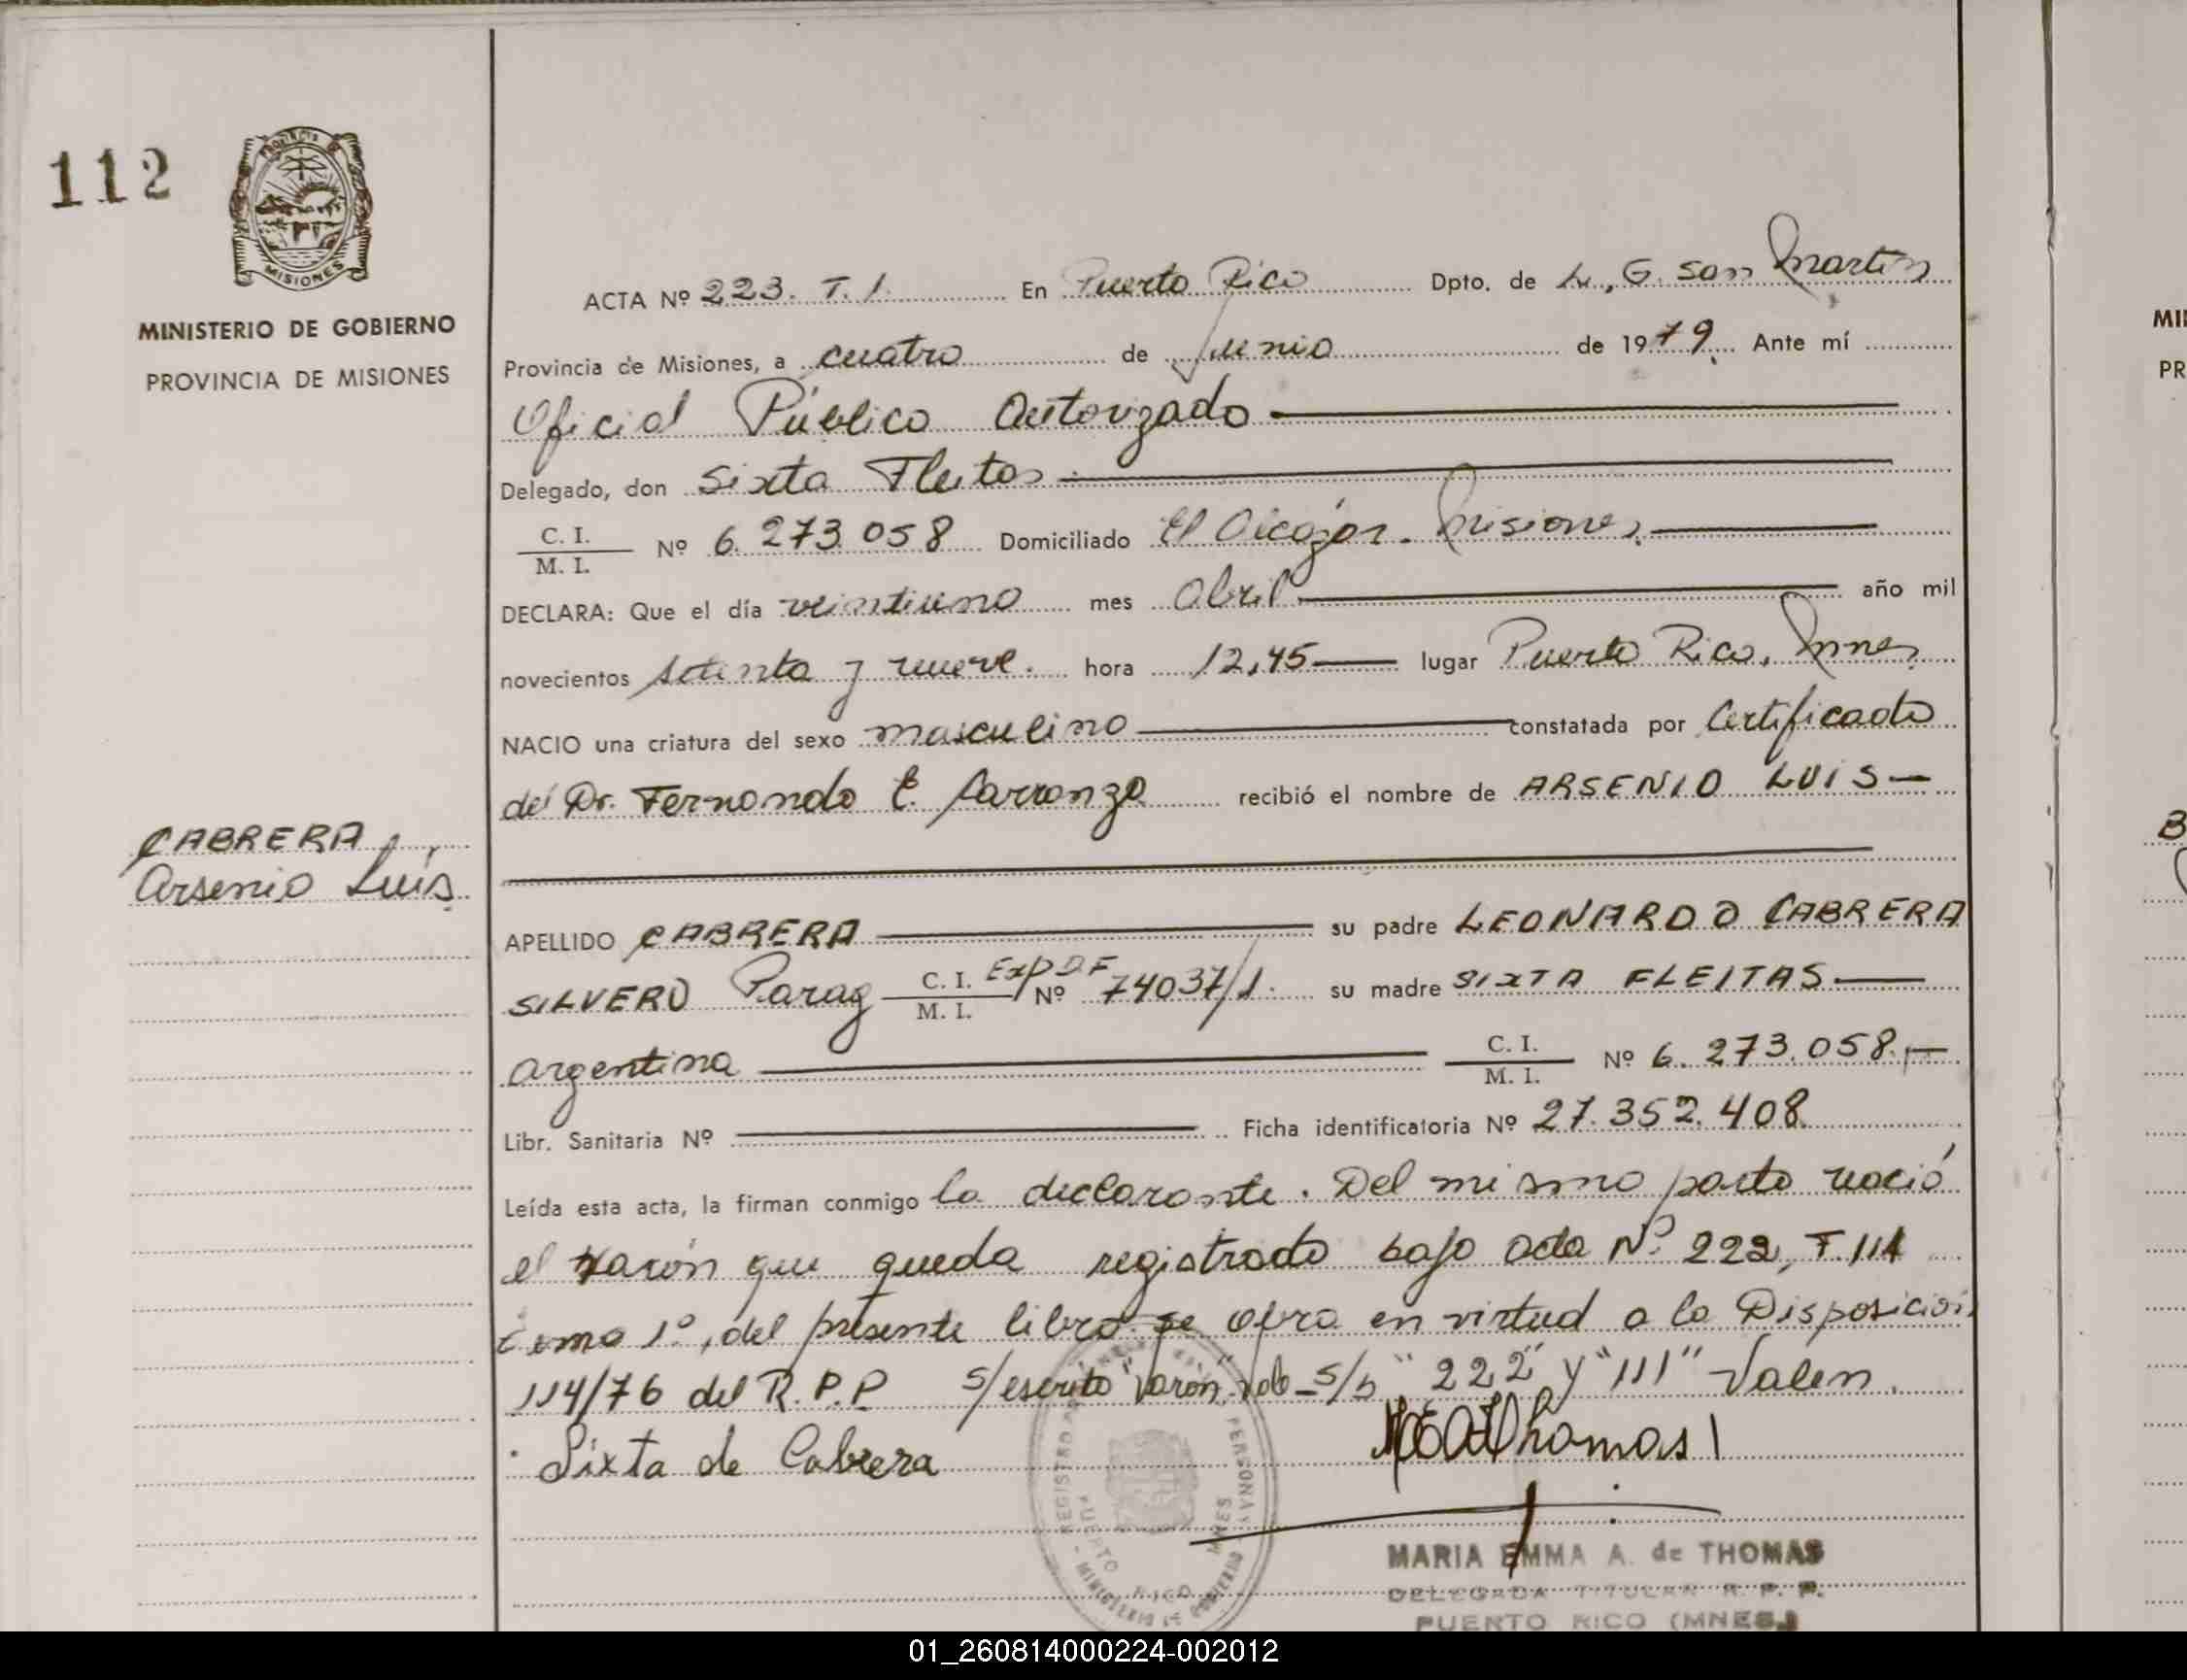 112
MISIONES
MINISTERIO DE GOBIERNO
PROVINCIA DE MISIONES
CABRERA
Arsenio Luis
ACTA Nº 223. T. 1. En Puerto Rico Dpto. de L. G. San Martin
Provincia de Misiones, a cuatro de Junio de 1979. Ante mí
Oficial Público Autorizado
Delegado, don Sixta Fleitas
C. I.
M. I. Nº 6.273.058 Domiciliado El Alcazar. Misiones.
DECLARA: Que el día veintiuno mes Abril año mil
novecientos setenta y nueve. hora 12,45 lugar Puerto Rico, Mnes.
NACIO una criatura del sexo masculino constatada por Certificado
del Dr. Fernando E. Carranza recibió el nombre de ARSENIO LUIS
APELLIDO CABRERA su padre LEONARDO CABRERA
SILVERO Parag C. I. Exp D.F.
M. I. Nº 74037/1. su madre SIXTA FLEITAS
argentina C. I.
M. I. Nº 6.273.058.
Libr. Sanitaria Nº Ficha identificatoria Nº 27.352.408.
Leída esta acta, la firman conmigo la declarante. Del mismo parto nació
el Varón que queda registrado bajo acta Nº 222, F 111
tomo 1º, del presente libro se obra en virtud a la Disposición
114/76 del R.P.P s/escrito "Varón" Vale - s/b "222" y "111" Valen.
Sixta de Cabrera
MEAThomas
MARIA EMMA A. de THOMAS
DELEGADA TITULAR R. P. P.
PUERTO RICO (MNES.)
PUERTO RICO MNES
01_260814000224-002012
MI
PR
B